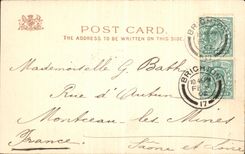 POST CARD.
THE ADDRESS TO BE WRITTEN ON THIS SIDE
BRIGHTON
Mademoiselle G. Bath
BRIGHTON
Rue d'Autun
17
Montceau-les-Mines
France
Saône et Loire